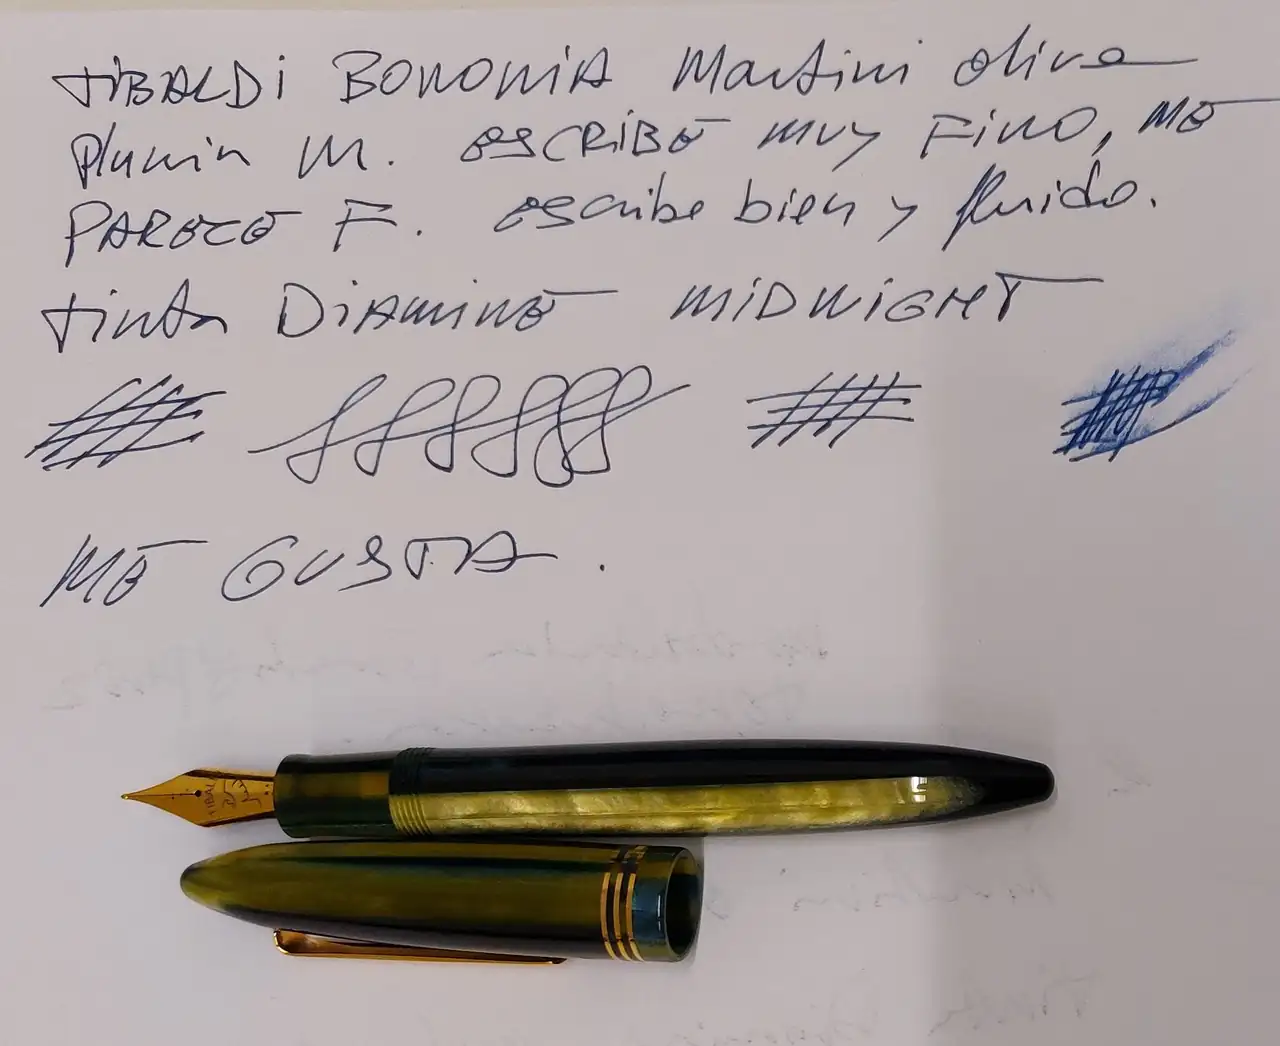 TIBALDI BONONIA Martini olive
Plumin M. escribe muy Fino, me
Parece F. escribe bien y fluido.
tinta Diamine MIDNIGHT
Me GUSTA.
TIBALDI